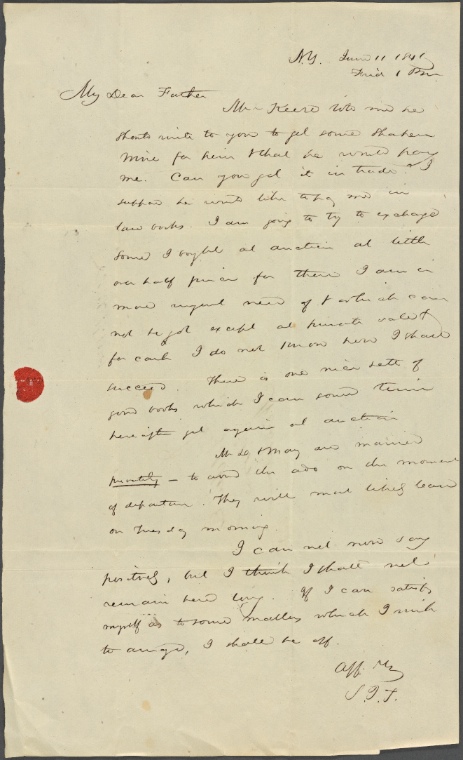 N.Y. June 11 1841
Frid 1 Pm
My Dear Father
Mr Keese told me he
should write to you to get some Shaker
Wine for him & that he would pay
me. Can you get it in trade? I
suppose he would like to pay me in
law books I am going to try to exchange
some I bought at auction at little
over half price for those I am in
more urgent need of & which can
not be got except at private sale &
for cash I do not know how I shall
succeed. There is one nice sett of
good books which I can some time
hereafter get again at auction
Mr & May are married
privately — to avoid the ado on the moment
of departure. They will most likely leave
on Tuesday morning.
I can not now say
positively, but I think I shall not
remain here long. If I can satisfy
myself as to some matters which I wish
to arrange, I shall be off.
Aff Yrs